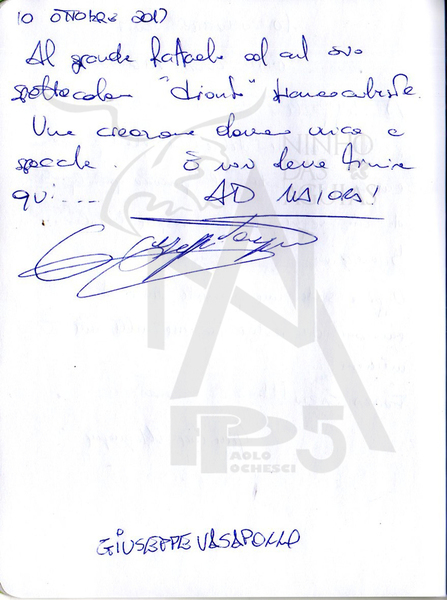 10 OTTOBRE 2017
Al grande Raffaele ed al suo
spettacolare "trionfo"
Una creazione davvero unica e
speciale. E non deve finire
qui.... AD MAIORA!
NINHO
PP5
PAOLO
OCHESCI
GIUSEPPE VASAPOLLO